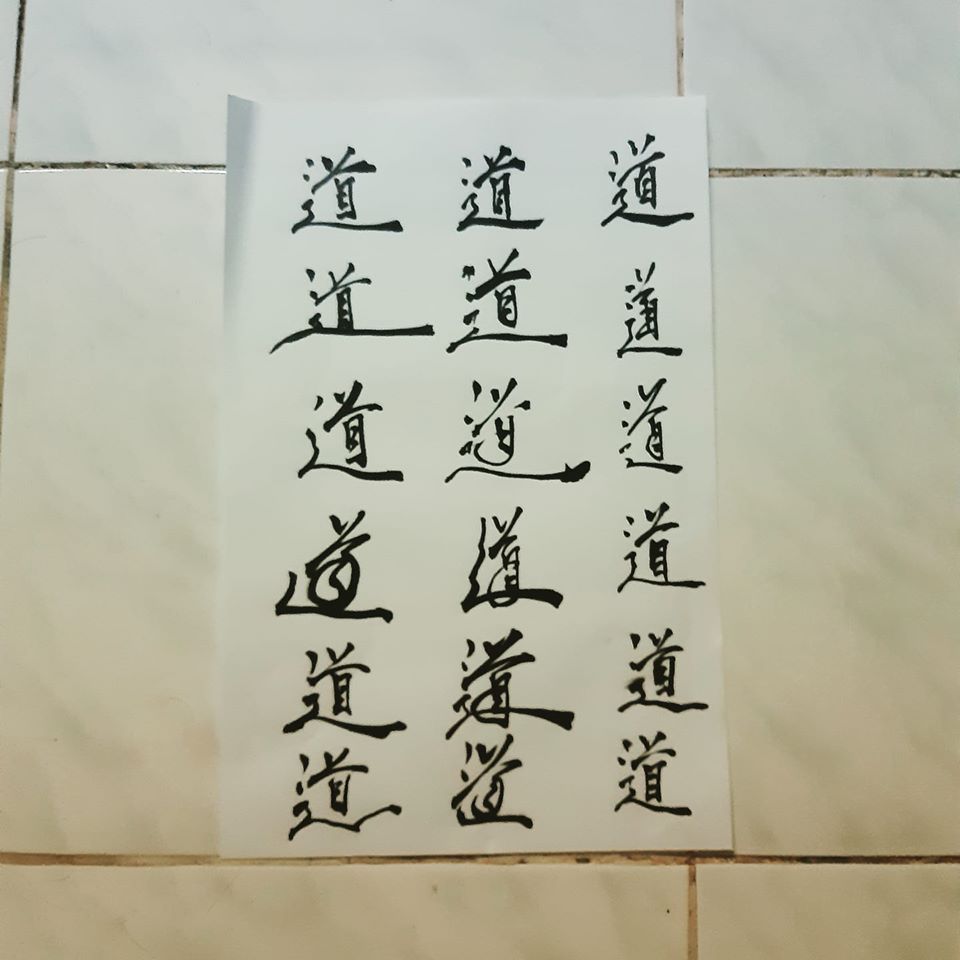 道 道 道
道 道 道
道 道 道
道 道 道
道 道 道
道 道 道